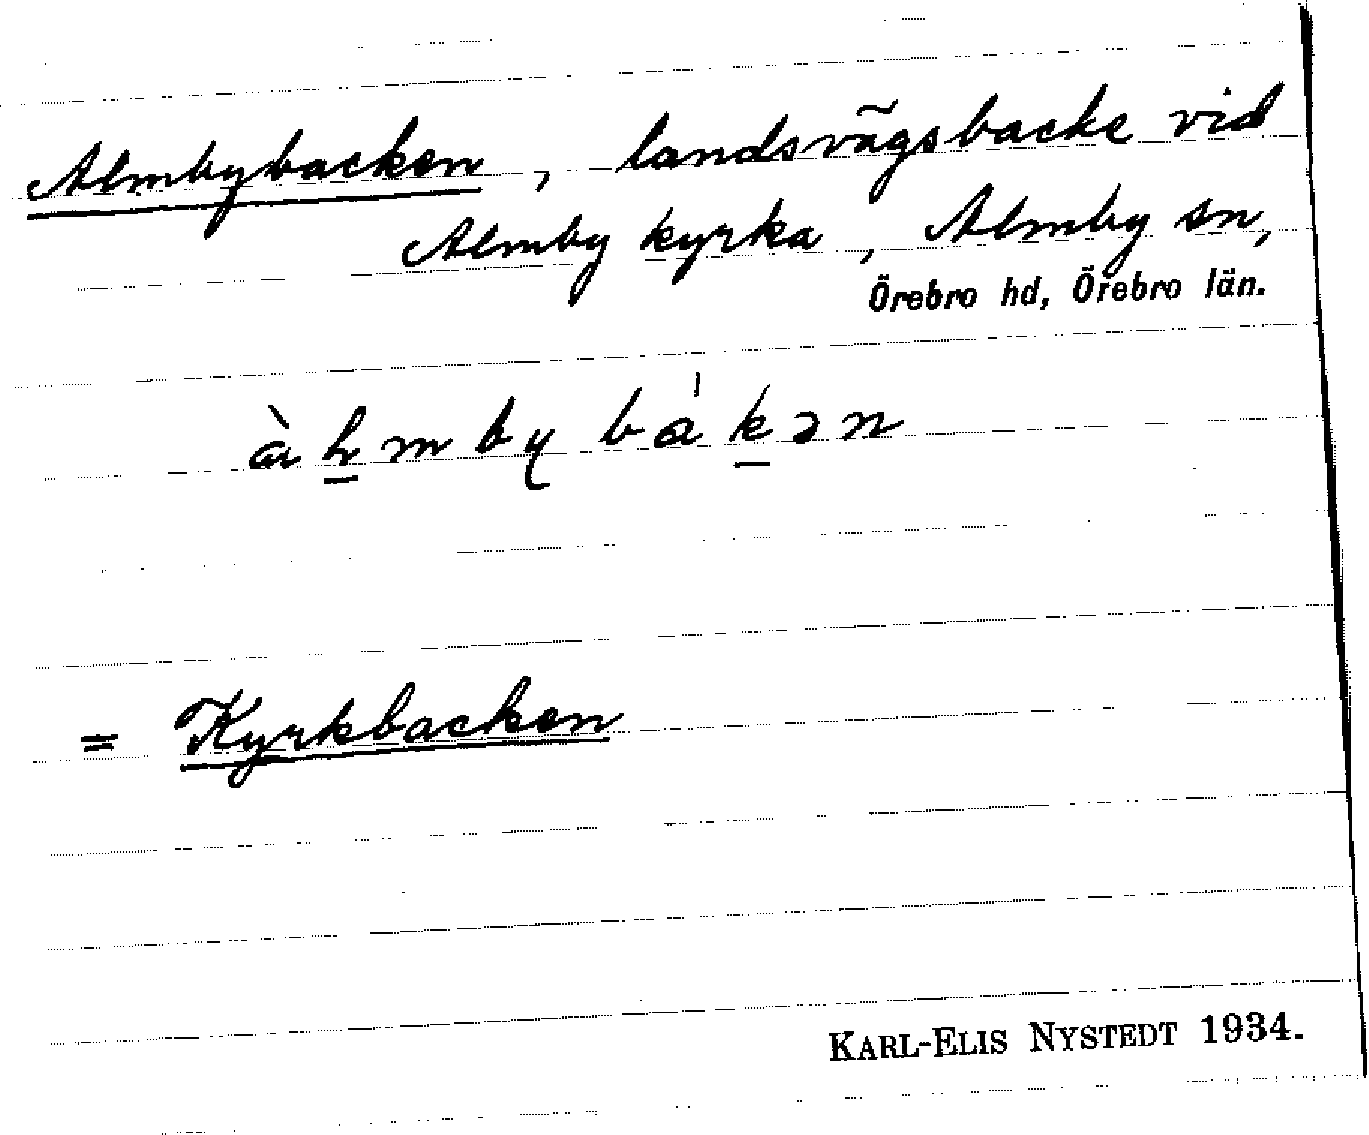 Almbybacken, landsvägsbacke vid
Almby kyrka, Almby sn,
Örebro hd, Örebro län.
= Kyrkbacken
KARL-ELIS NYSTEDT 1934.